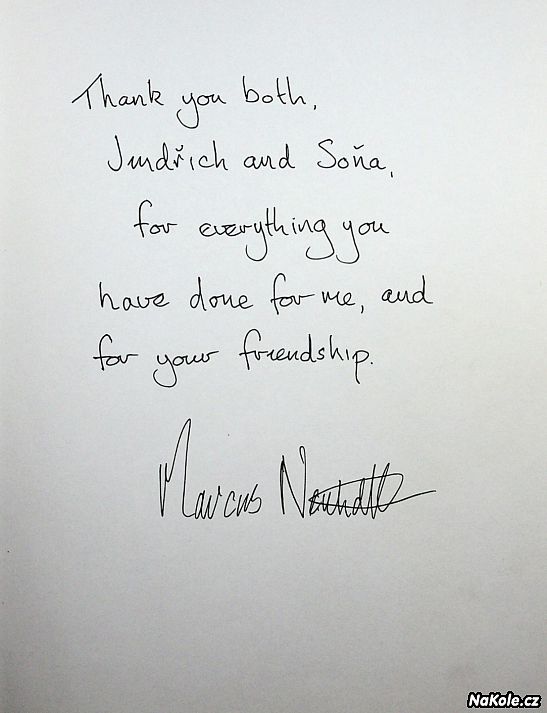 Thank you both,
Jindřich and Soňa,
for everything you
have done for me, and
for your friendship.
Marcus
NaKole.cz